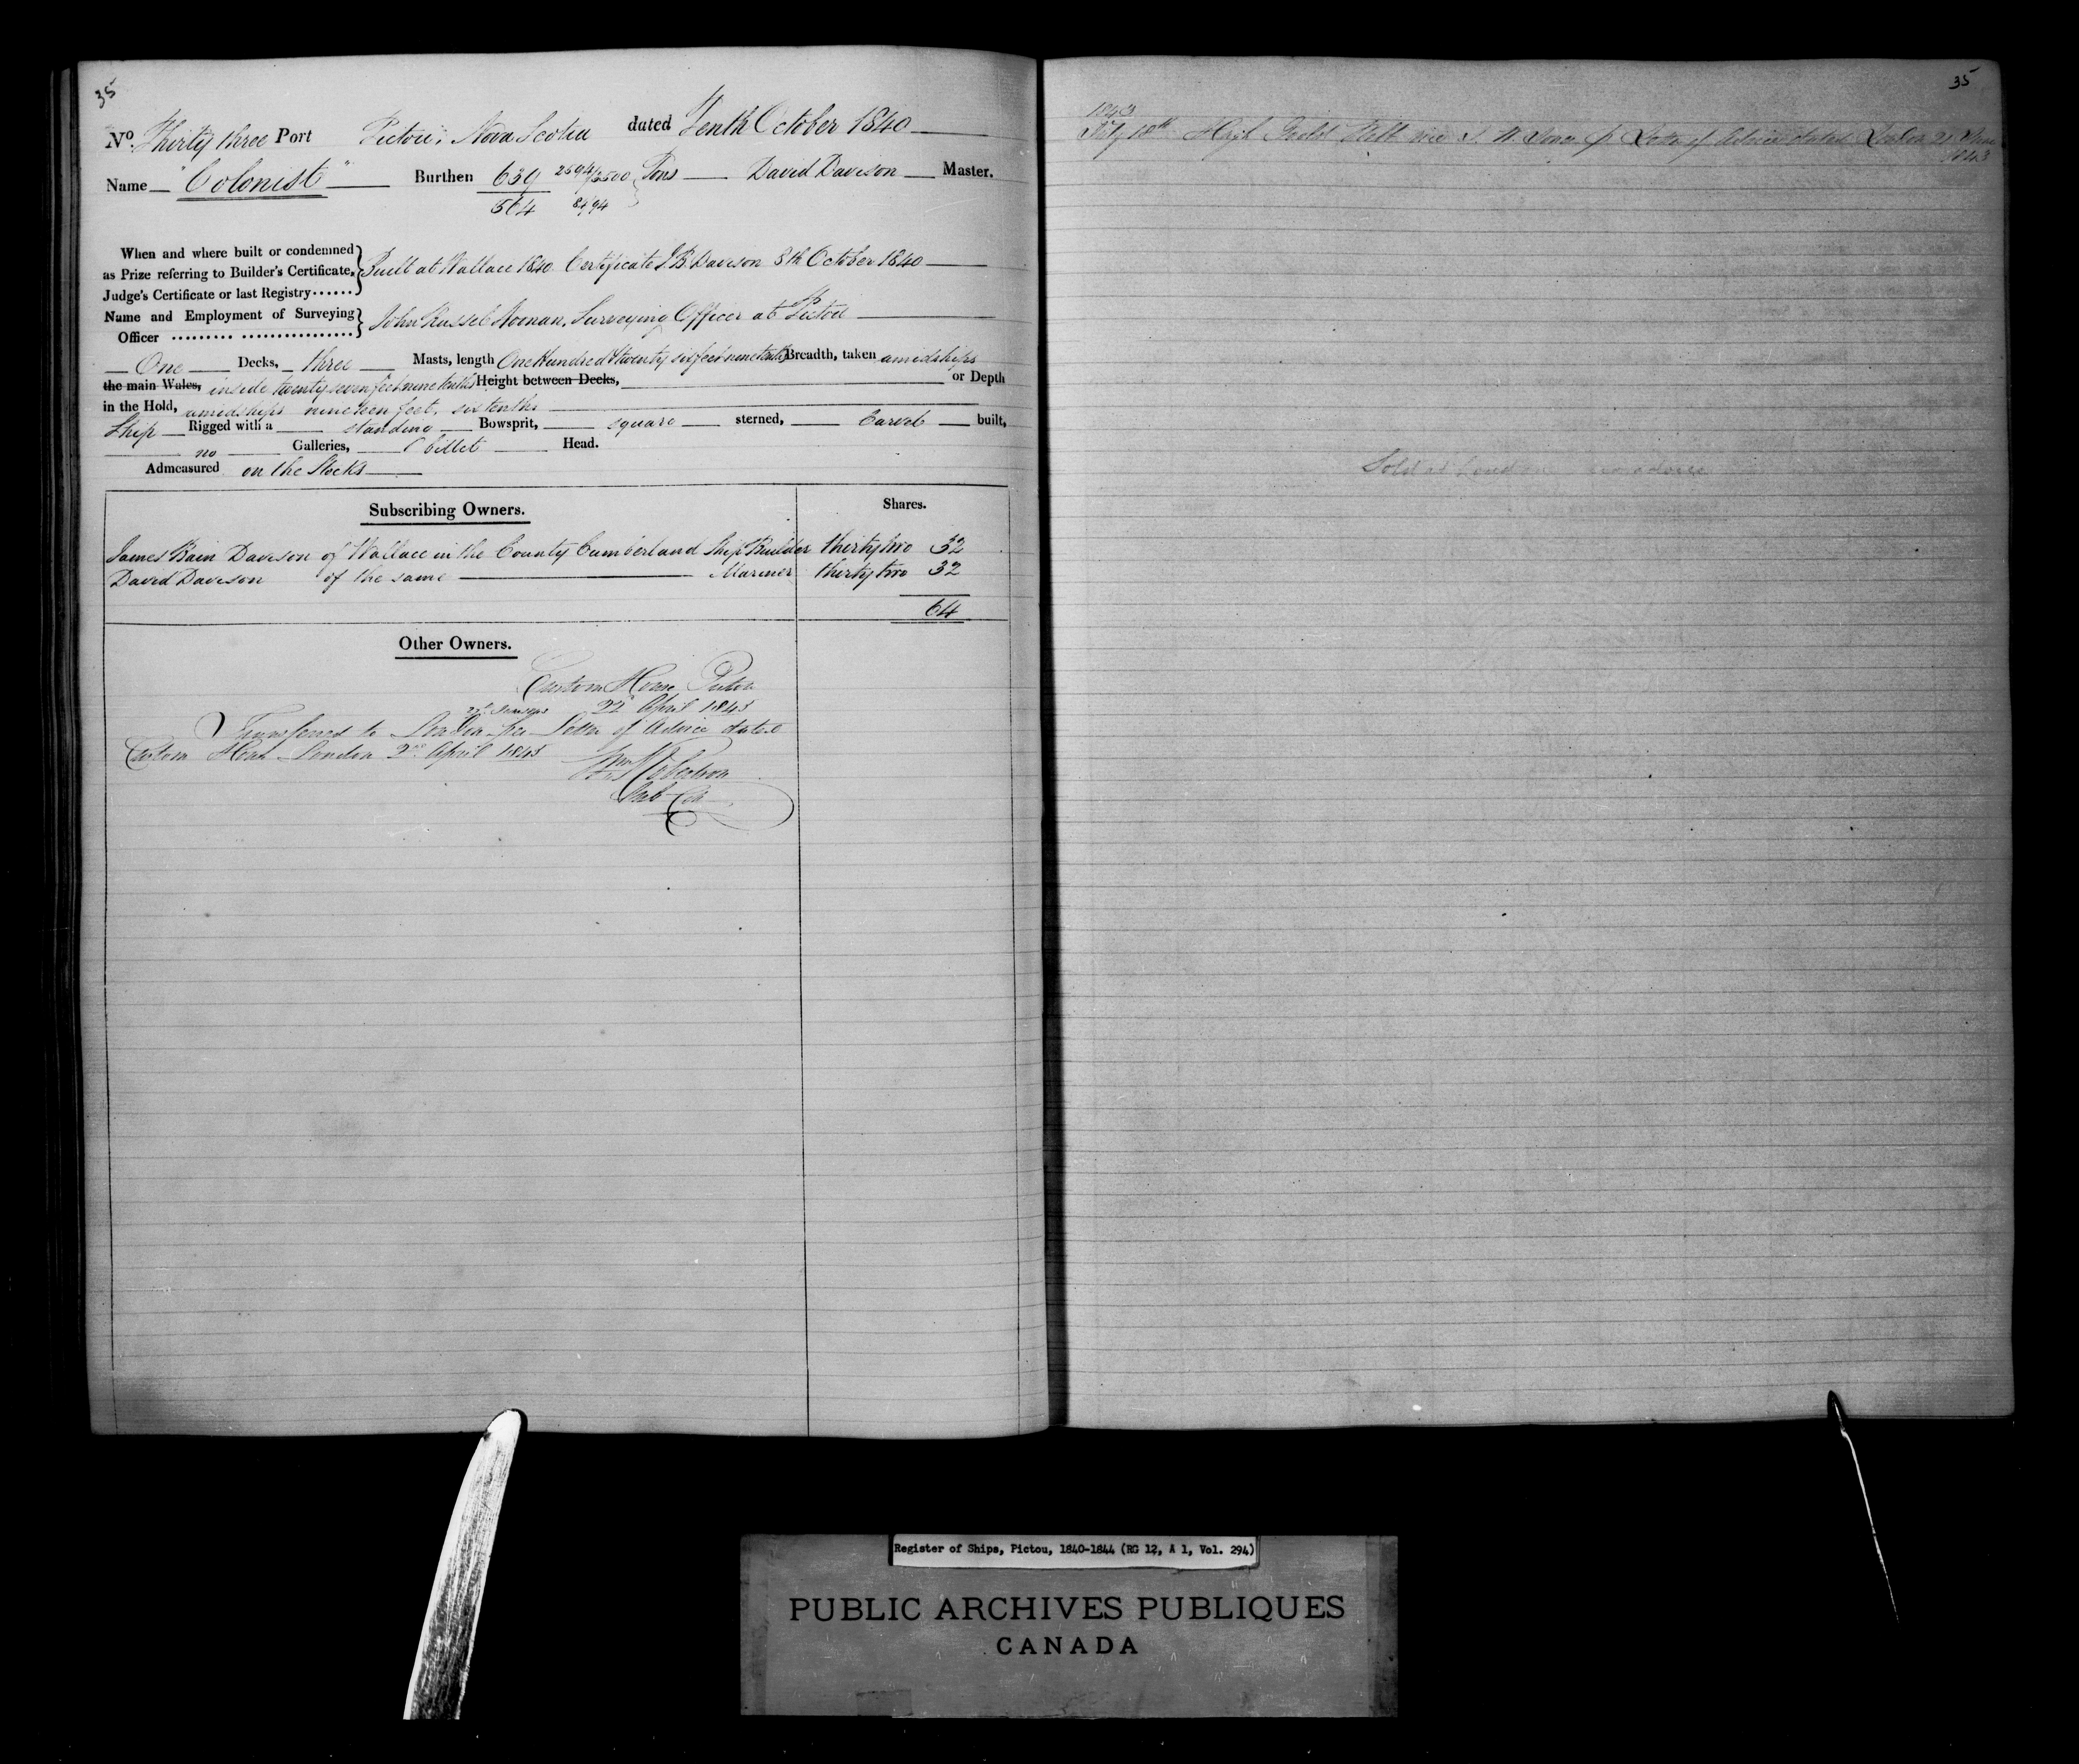 35
No. Thirty three Port Pictou, Nova Scotia dated Tenth October 1840
Name "Colonist" Burthen 639 2594/3500 Tons David Davison Master.
564 84/94
When and where built or condemned
as Prize referring to Builder's Certificate, Built at Wallace 1840 Certificate J B Davison 8th October 1840
Judge's Certificate or last Registry
Name and Employment of Surveying
Officer John Russel Noonan, Surveying Officer at Pictou
One Decks, three Masts, length One Hundred & twenty six feet nine tenths Breadth, taken amidships
the main Wales, inside twenty seven feet nine tenths Height between Decks, or Depth
in the Hold, amidships nineteen feet, six tenths
Ship Rigged with a standing Bowsprit, square sterned, Carvel built,
no Galleries, billet Head.
Admeasured on the Stocks
Subscribing Owners. Shares.
James Bain Davison of Wallace in the County Cumberland Ship Builder thirty two 32
David Davison of the same Mariner thirty two 32
64
Other Owners.
Custom House Pictou
22d April 1843
Transferred to London per Letter of Advice dated
Custom House London 2nd April 1843
Wm Robertson
Sub Col
35
1843
July 18th vice Letter of Advice dated London 21 June
1843
Sold at London no advice
Register of Ships, Pictou, 1840-1844 (RG 12, A 1, Vol. 294)
PUBLIC ARCHIVES PUBLIQUES
CANADA